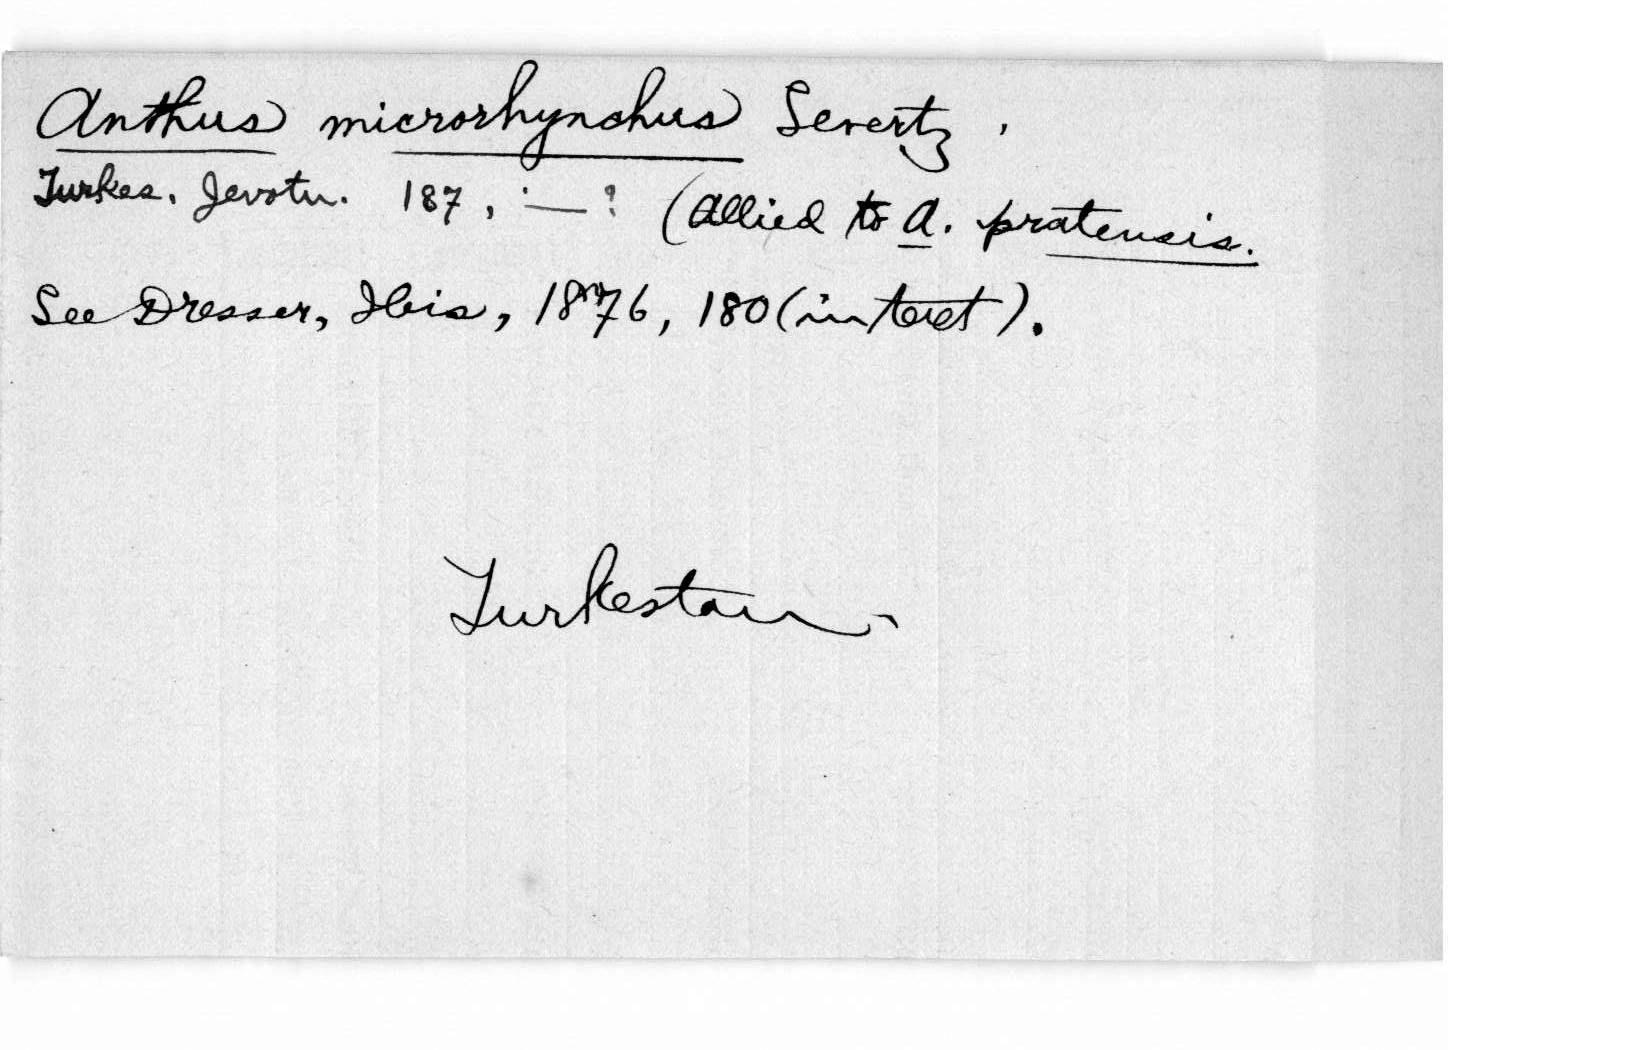 Anthus microrhynchus Severtz.
Turkes. Jevotn. 187 , : — ? (Allied to A. pratensis.
See Dresser, Ibis, 1876, 180 (in text).
Turkestan